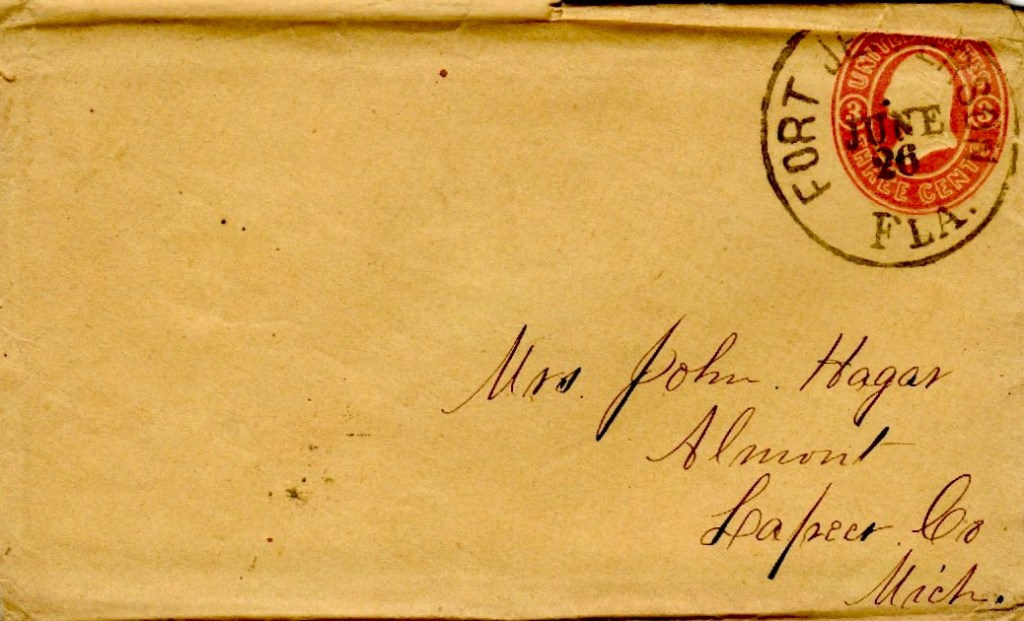 FORT JEFFERSON
FLA.
JUNE
26
UNITED STATES
3 3
THREE CENTS
Mrs. John Hagar
Almont
Lapeer Co
Mich.